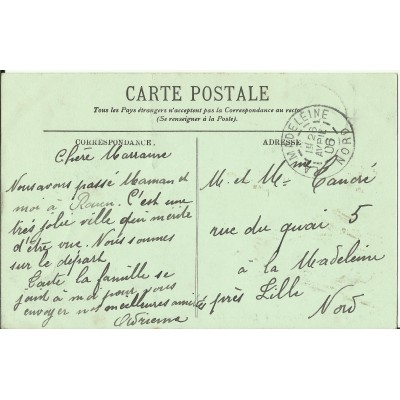 CARTE POSTALE
Tous les Pays étrangers n'acceptent pas la Correspondance au recto
(Se renseigner à la Poste).
CORRESPONDANCE
Chère Marraine
Nous avons passé Maman et
moi à Rouen. C'est une
très jolie ville qui mérite
d'être vue. Nous sommes
sur le départ
Toute la famille se
joint à moi pour vous
envoyer nos meilleures amitiés
Adrienne
ADRESSE
LA MADELEINE
26
AVRIL
06
NORD
M. et Mme
rue du quai 5
à la Madeleine
près Lille
Nord